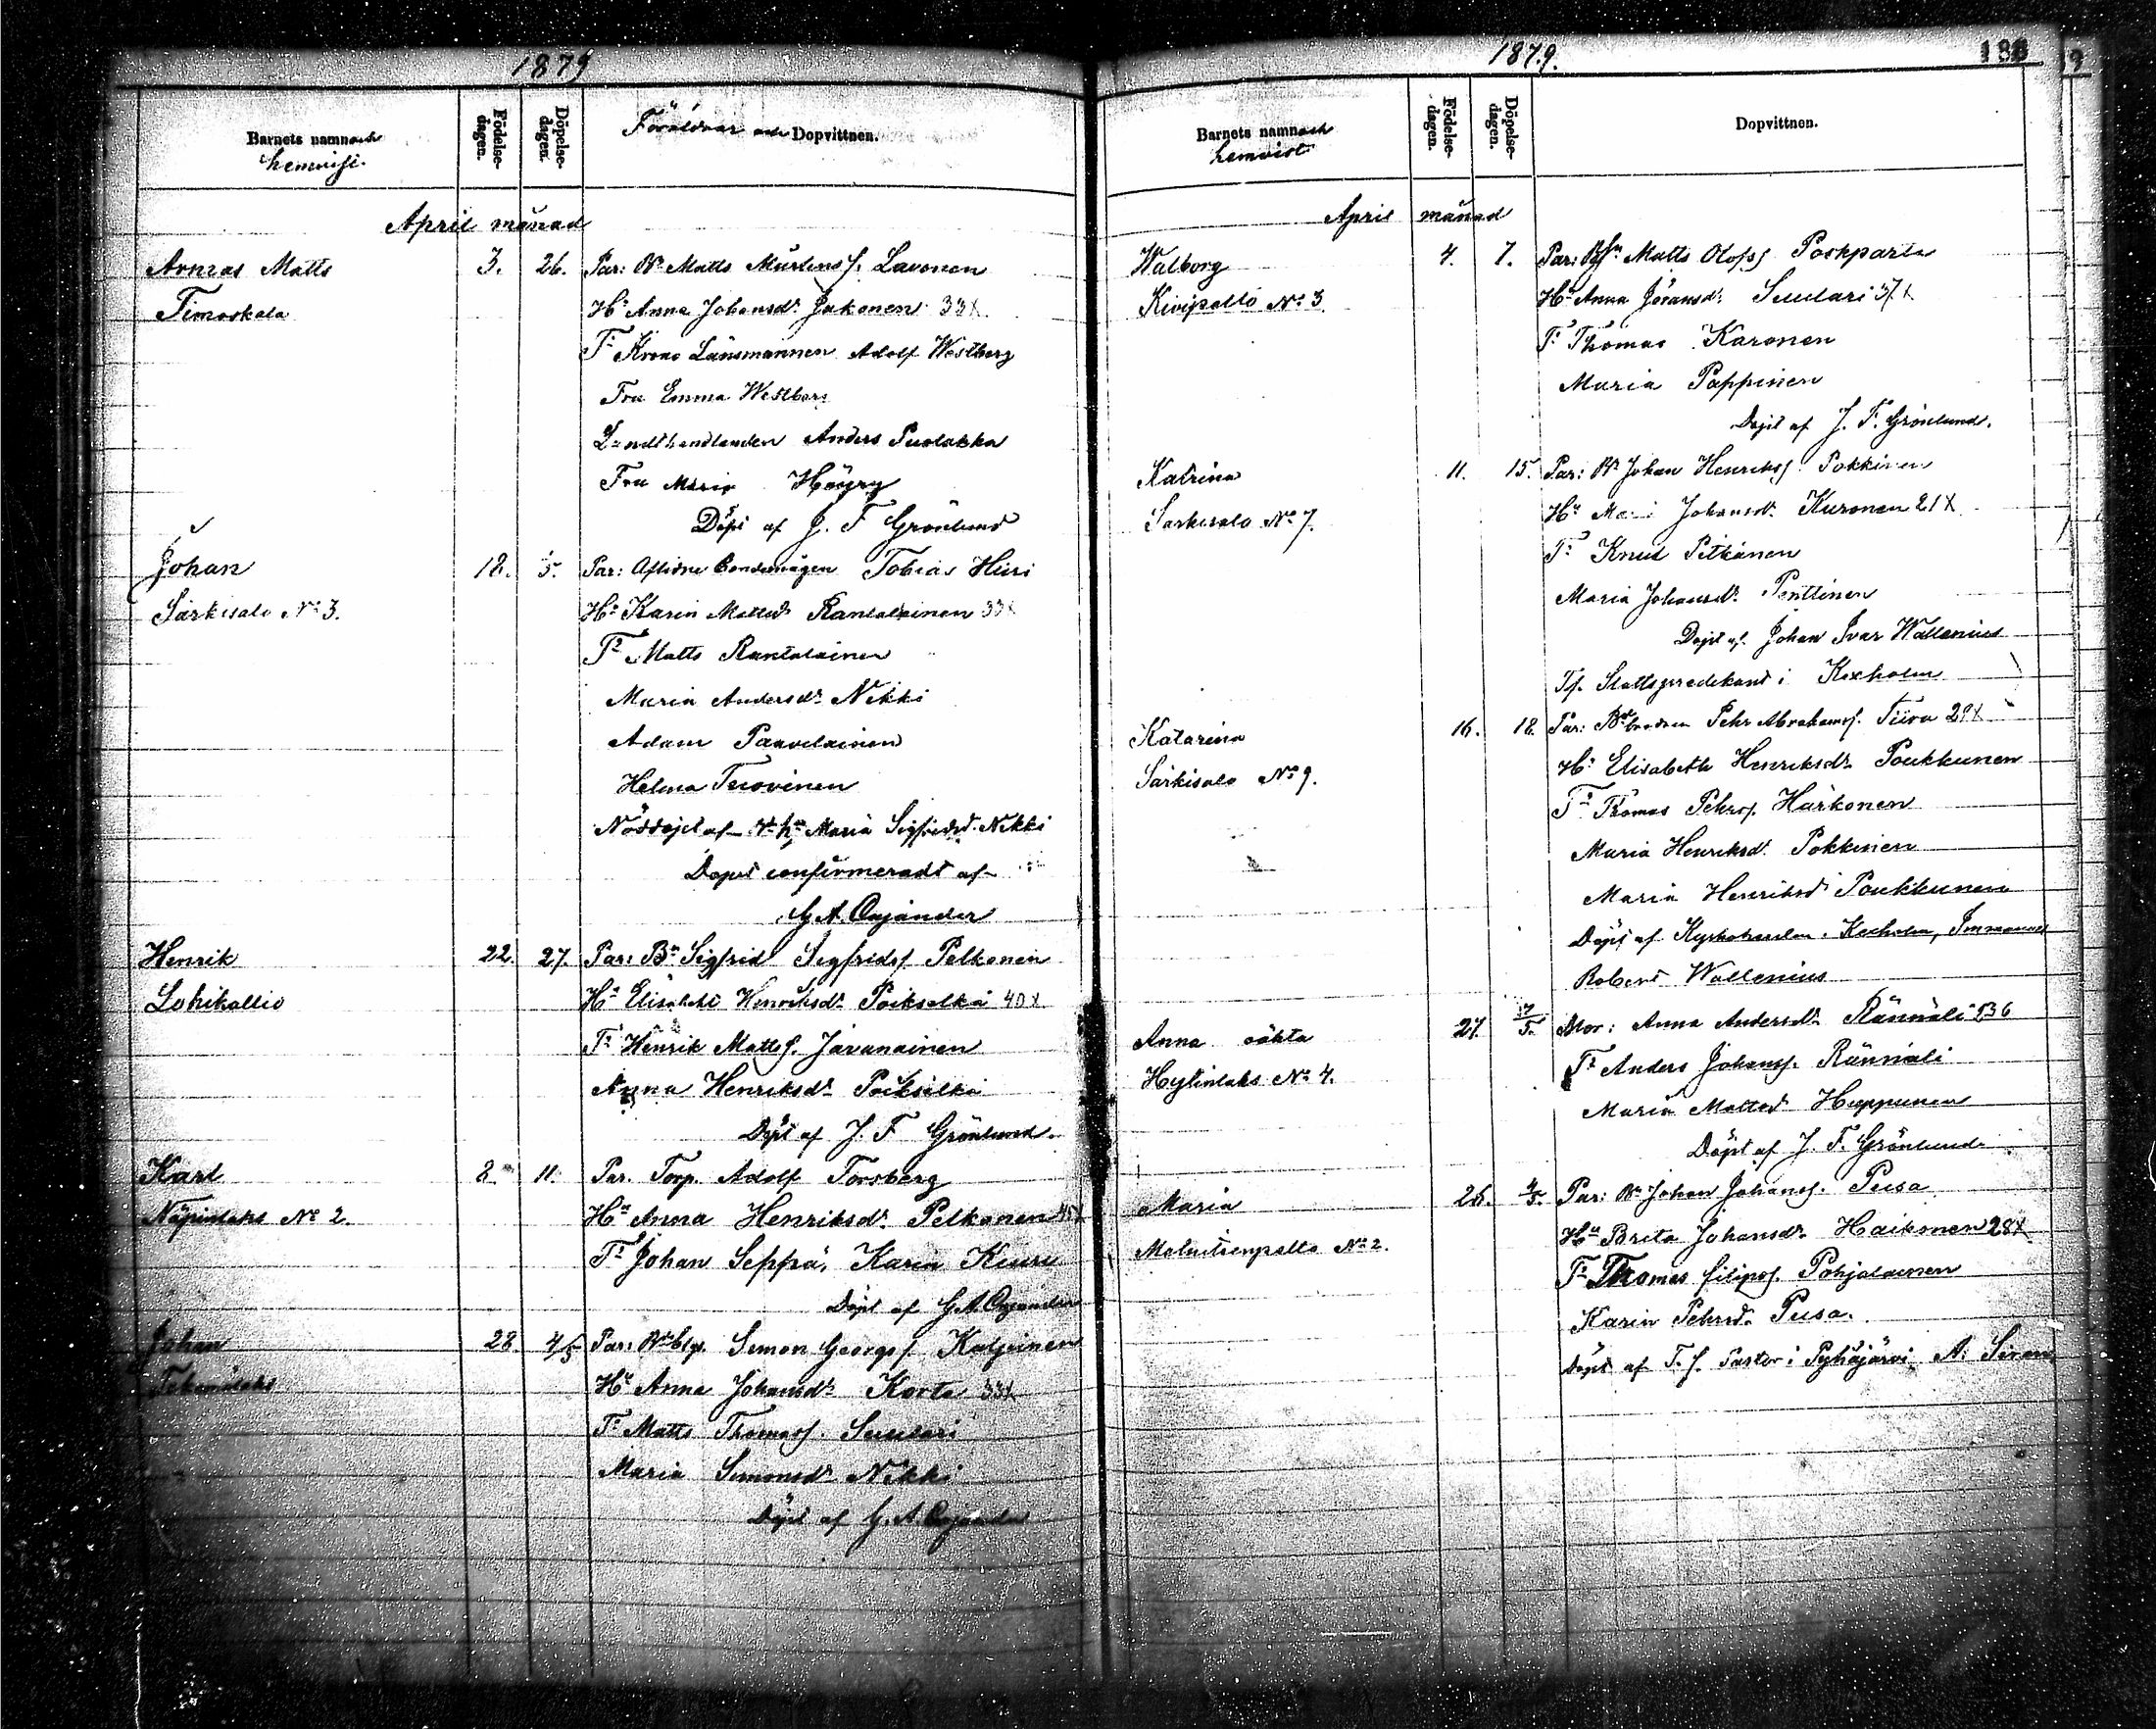 1879
Barnets namn och hemvist.
Födelse-dagen.
Döpelse-dagen.
Föräldrar och Dopvittnen.
April månad
Matts 3. 26. Par: Bn Matts Mårtensf. Lavonen
Timoskala Hu Anna Johansdr Jakonen 33
Tr Krono Länsmannen Adolf Westberg
Fru Emma Westberg
Landthandlanden Anders Puolakka
Fru Maria Höyry
Döpt af J. F Grönlund
Johan 18. 5. Par: Aflidne Tobias Hiiri
Särkisalo No 3. Hu Karin Mattsdr Rantalainen 33
Tr Matts Rantalainen
Maria Andersdr Nikki
Adam Paavilainen
Helena Tuovinen
Nöddöpt af Maria Sigfridsd. Nikki
Dopet confirmeradt af
G. A. Cajander
Henrik 22. 27. Par: Bn Sigfrid Sigfridsf Pelkonen
Lohikallio Hu Elisabet Henriksdr Poikselkä 40
Tr Henrik Mattsf. Javanainen
Anna Henriksdr Poikselkä
Döpt af J. F Grönlund.
Karl 8. 11. Par. Torp. Adolf Forsberg
No 2. Hu Anna Henriksdr Pelkonen
Tr Johan Seppä, Karin Kiuru
Döpt af G. A. Cajander
Johan 28 4/5 Par: Simon Georgsf Kaljunen
Hu Anna Johansdr Korte 33
Tr Matts Thomasf. Suulari
Maria Simonsdr Nikki
Döpt af G. A Cajander
1879. 188
Barnets namn och hemvist
Födelse-dagen.
Döpelse-dagen.
Dopvittnen.
April månad
Walborg 4. 7. Par: Matts Olofsf Poskparta
Kivipelto No 3. Hu Anna Göransdr. Suulari 37
Tr Thomas Karonen
Maria Pappinen
Döpt af J. F. Grönlund.
Katrina 11. 15. Par: Bn Johan Henriksf. Pokkinen
Särkisalo No 7. Hu Johansdr. Kuronen 21
Tr Knut Pitkänen
Maria Johansdr. Penttinen
Döpt af Johan Ivar Wallenius
Tf. Slottspredikant i Kexholm
Katarina 16. 18. Par: Pehr Abrahamsf. Tiira 29
Särkisalo No 9. Hu Elisabeth Henriksdr. Poukkunen
Tr Thomas Pehrsf. Härkönen
Maria Henriksd. Pokkinen
Maria Henriksd Poukkunen
Döpt af Kyrkoherden i Kexholm, Immanuel
Robert Wallenius
Anna oäkta 27. /5. Mor: Anna Andersdr Rännäli 36
Hytinlaks No 4. Tr Anders Johansf. Rännäli
Maria Mattsd. Huppunen
Döpt af J. F. Grönlund
Maria 26. 4/5. Par: Bn Johan Johansf. Pusa
No 2. Hu Brita Johansdr. Haikonen 28
Tr Thomas Filipsf. Pohjalainen
Karin Pehrsd. Pusa.
Döpt af T. f. Pastor i Pyhäjärvi A. Siren